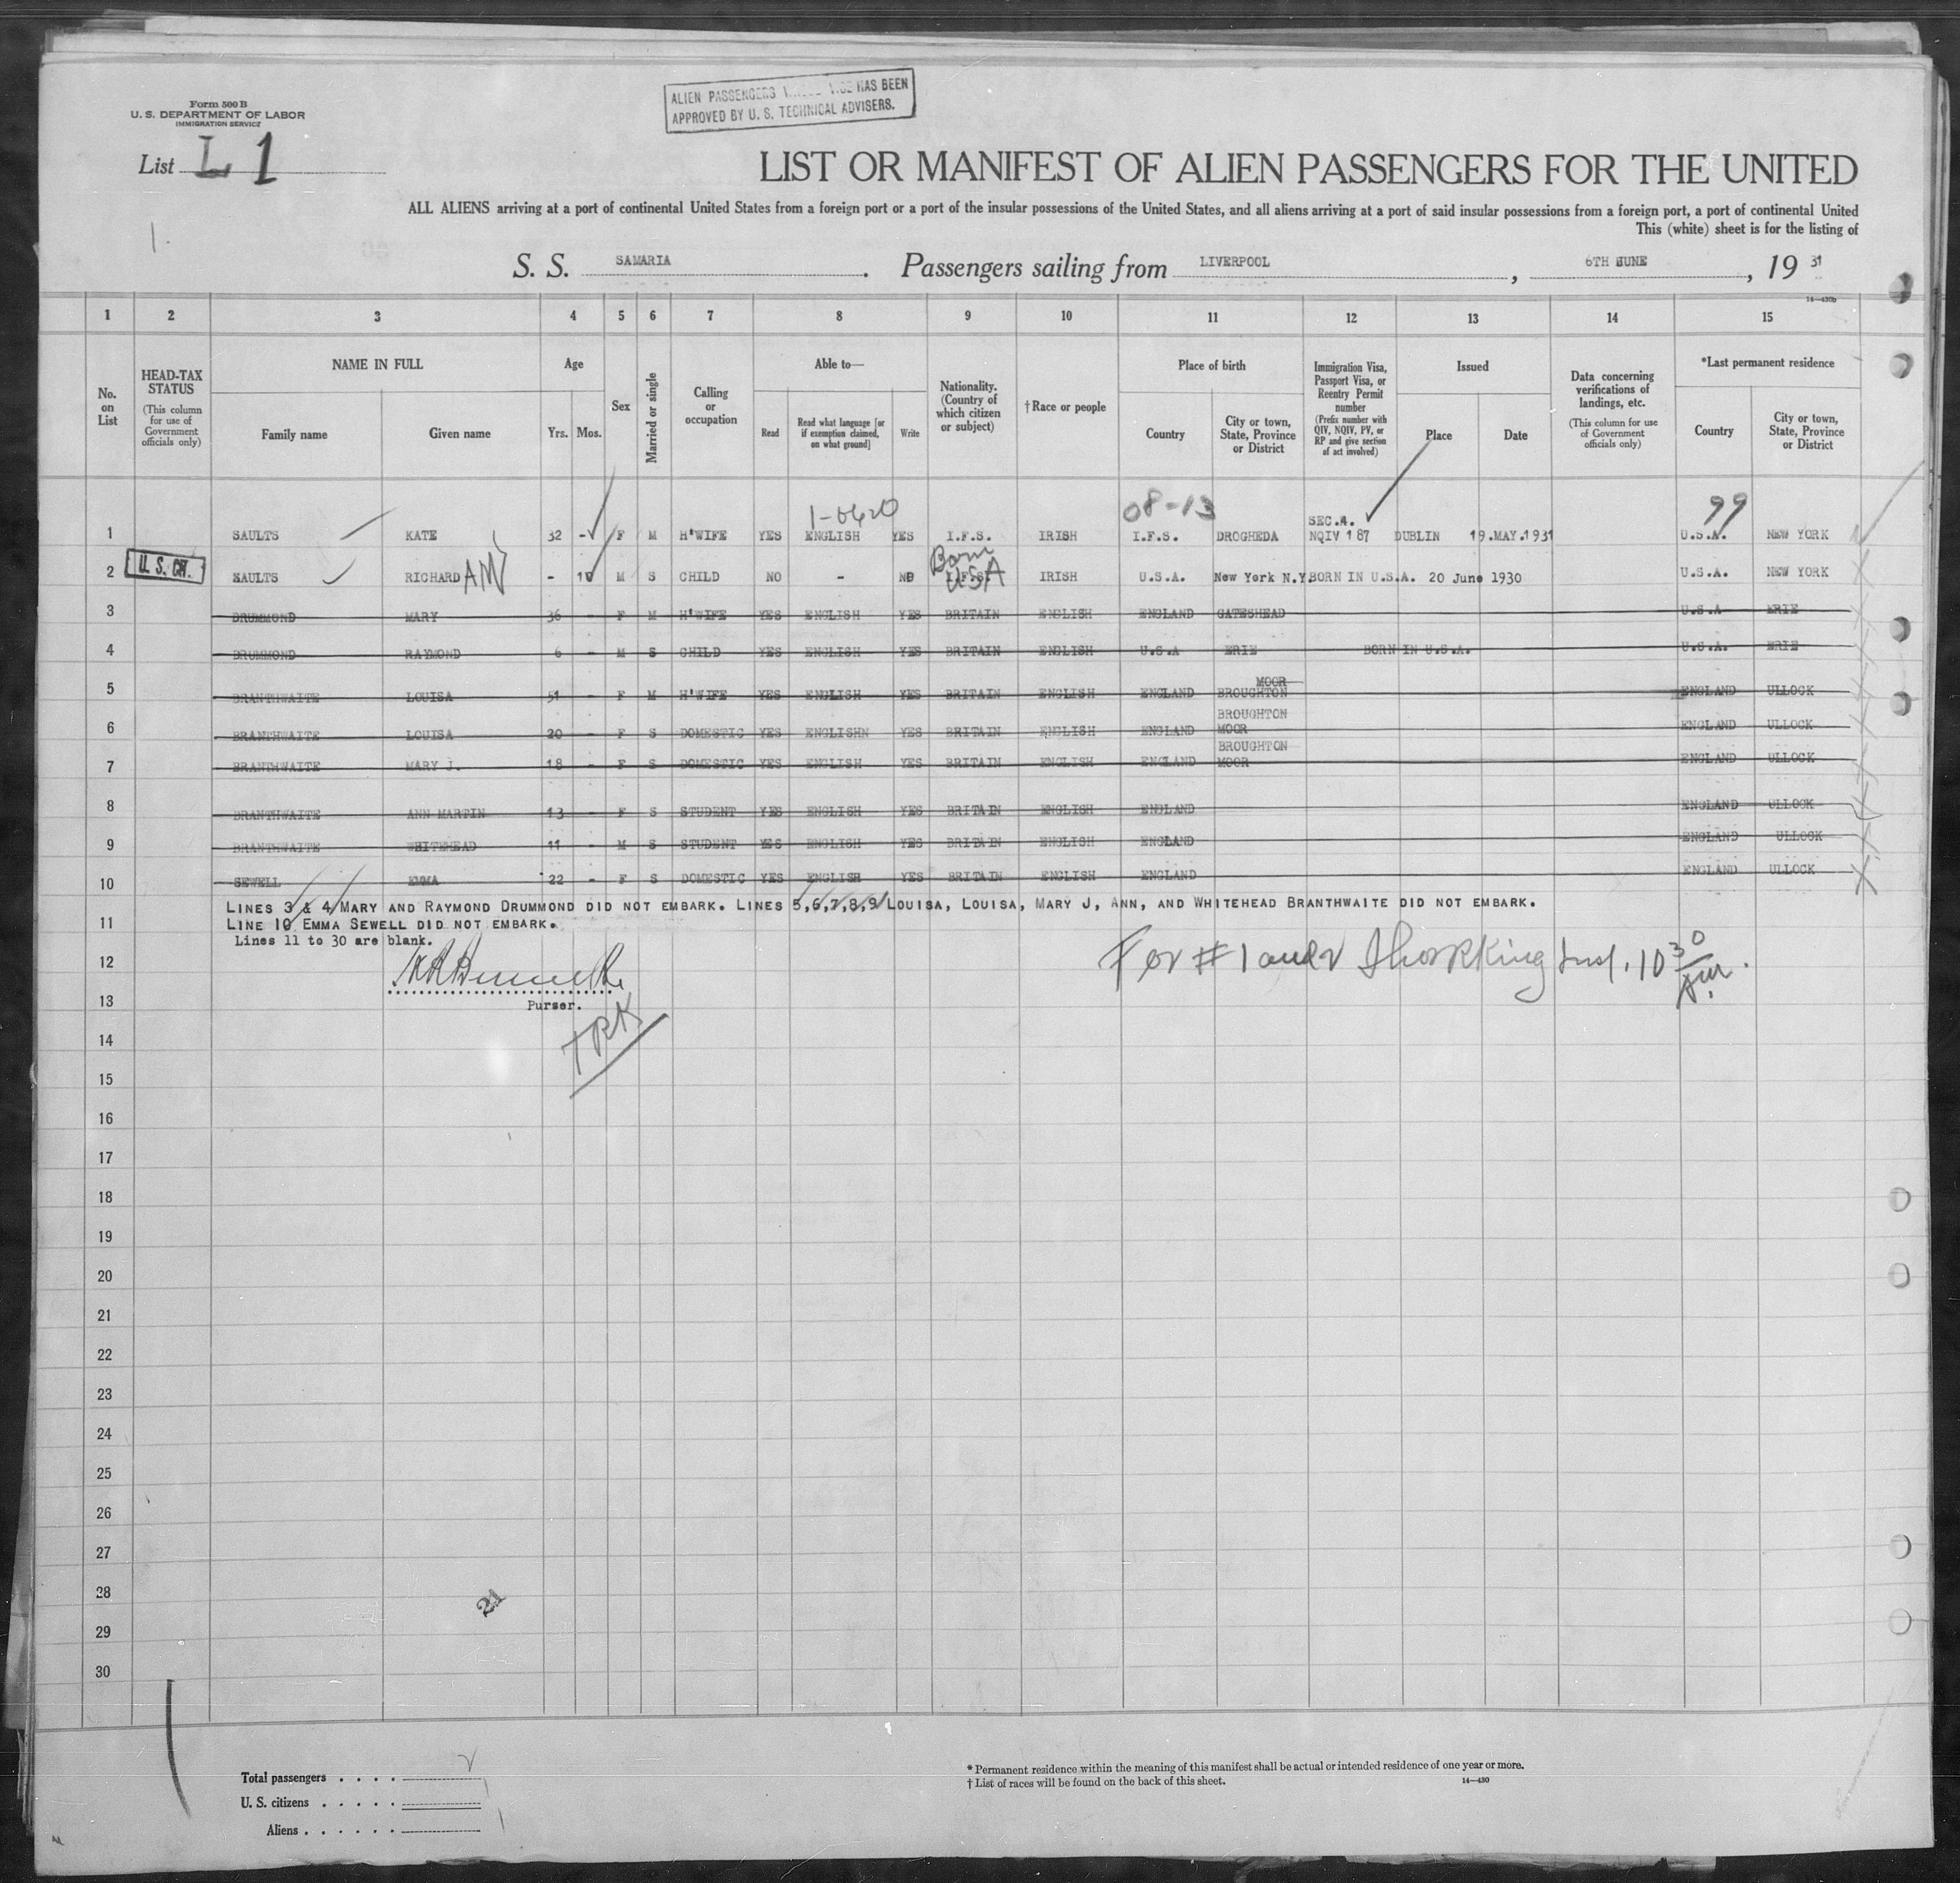 Form 500 B
U. S. DEPARTMENT OF LABOR
IMMIGRATION SERVICE
ALIEN PASSENGERS HAS BEEN
APPROVED BY U. S. TECHNICAL ADVISERS.
List L 1
LIST OR MANIFEST OF ALIEN PASSENGERS FOR THE UNITED
ALL ALIENS arriving at a port of continental United States from a foreign port or a port of the insular possessions of the United States, and all aliens arriving at a port of said insular possessions from a foreign port, a port of continental United
This (white) sheet is for the listing of
1.
S. S. SAMARIA. Passengers sailing from LIVERPOOL, 6TH JUNE, 19 31
14—430b
1 2 3 4 5 6 7 8 9 10 11 12 13 14 15
No. on List
HEAD-TAX STATUS (This column for use of Government officials only)
NAME IN FULL
Family name Given name
Age
Yrs. Mos.
Sex
Married or single
Calling or occupation
Able to—
Read Read what language [or if exemption claimed, on what ground] Write
Nationality. (Country of which citizen or subject)
† Race or people
Place of birth
Country City or town, State, Province or District
Immigration Visa, Passport Visa, or Reentry Permit number (Prefix number with QIV, NQIV, PV, or RP and give section of act involved)
Issued
Place Date
Data concerning verifications of landings, etc. (This column for use of Government officials only)
*Last permanent residence
Country City or town, State, Province or District
1-0620 08-13 99
SEC.4.
1 SAULTS KATE 32 - F M H'WIFE YES ENGLISH YES I.F.S. IRISH I.F.S. DROGHEDA NQIV 187 DUBLIN 19.MAY.1931 U.S.A. NEW YORK
Born USA
2 U. S. CH. SAULTS RICHARD AM - 10 M S CHILD NO - NO I.F.S. IRISH U.S.A. New York N.Y. BORN IN U.S.A. 20 June 1930 U.S.A. NEW YORK
3 DRUMMOND MARY 36 - F M H'WIFE YES ENGLISH YES BRITAIN ENGLISH ENGLAND GATESHEAD U.S.A ERIE
4 DRUMMOND RAYMOND 6 - M S CHILD YES ENGLISH YES BRITAIN ENGLISH U.S.A ERIE BORN IN U.S.A. U.S.A. ERIE
5 BRANTHWAITE LOUISA 51 - F M H'WIFE YES ENGLISH YES BRITAIN ENGLISH ENGLAND BROUGHTON MOOR ENGLAND ULLOCK
6 BRANTHWAITE LOUISA 20 - F S DOMESTIC YES ENGLISHN YES BRITAIN ENGLISH ENGLAND BROUGHTON MOOR ENGLAND ULLOCK
7 BRANTHWAITE MARY J. 18 - F S DOMESTIC YES ENGLISH YES BRITAIN ENGLISH ENGLAND BROUGHTON MOOR ENGLAND ULLOCK
8 BRANTHWAITE ANN MARTIN 13 - F S STUDENT YES ENGLISH YES BRITAIN ENGLISH ENGLAND ENGLAND ULLOCK
9 BRANTHWAITE WHITEHEAD 11 - M S STUDENT YES ENGLISH YES BRITAIN ENGLISH ENGLAND ENGLAND ULLOCK
10 SEWELL EMMA 22 - F S DOMESTIC YES ENGLISH YES BRITAIN ENGLISH ENGLAND ENGLAND ULLOCK
LINES 3 & 4 MARY AND RAYMOND DRUMMOND DID NOT EMBARK. LINES 5,6,7,8,9 LOUISA, LOUISA, MARY J, ANN, AND WHITEHEAD BRANTHWAITE DID NOT EMBARK.
11 LINE 10 EMMA SEWELL DID NOT EMBARK.
Lines 11 to 30 are blank.
12 For #1 and 2 Insp. 10 30
13 Purser.
14
15
16
17
18
19
20
21
22
23
24
25
26
27
28
21
29
30
Total passengers . . . . 2
U. S. citizens . . . . . 1
Aliens . . . . . . 1
* Permanent residence within the meaning of this manifest shall be actual or intended residence of one year or more.
† List of races will be found on the back of this sheet. 14—430